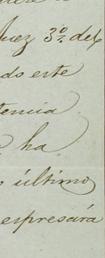 uez 3º del
do este
tencia
ha
o último
espresará